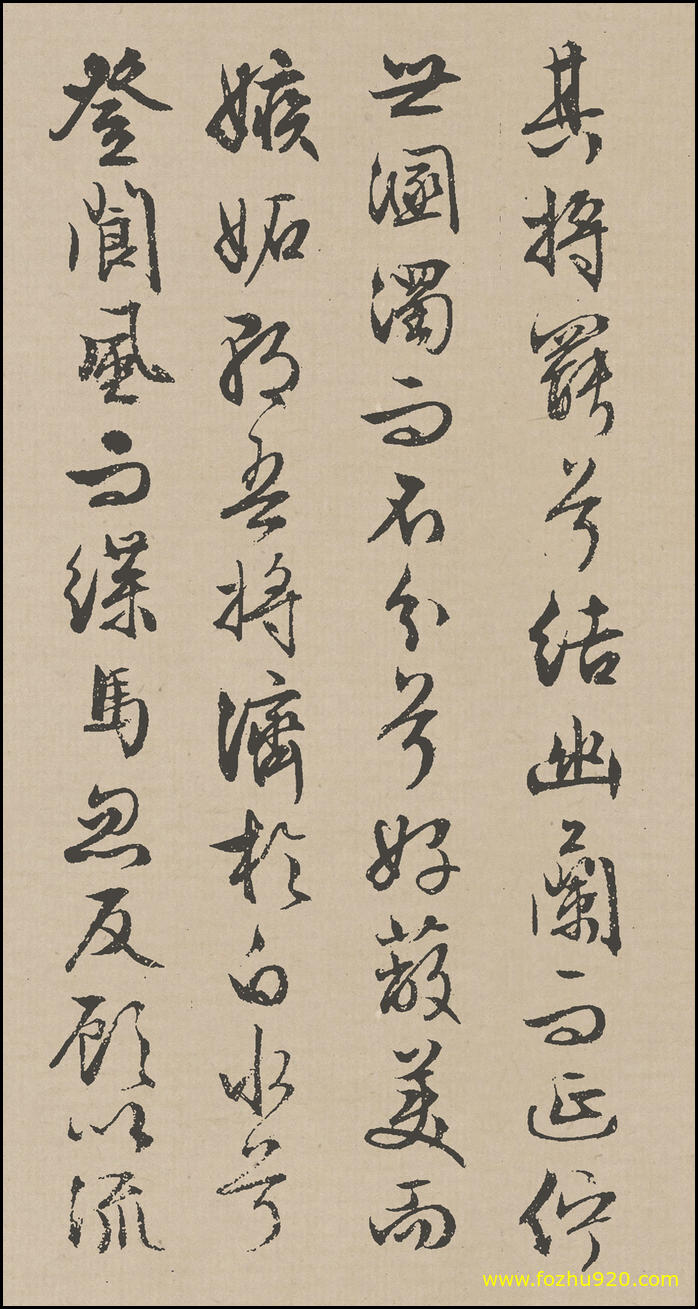 其將罷兮結幽蘭而延佇
世溷濁而不分兮好蔽美而
嫉妬朝吾將濟於白水兮
登閬風而緤馬忽反顧以流
www.fozhu920.com